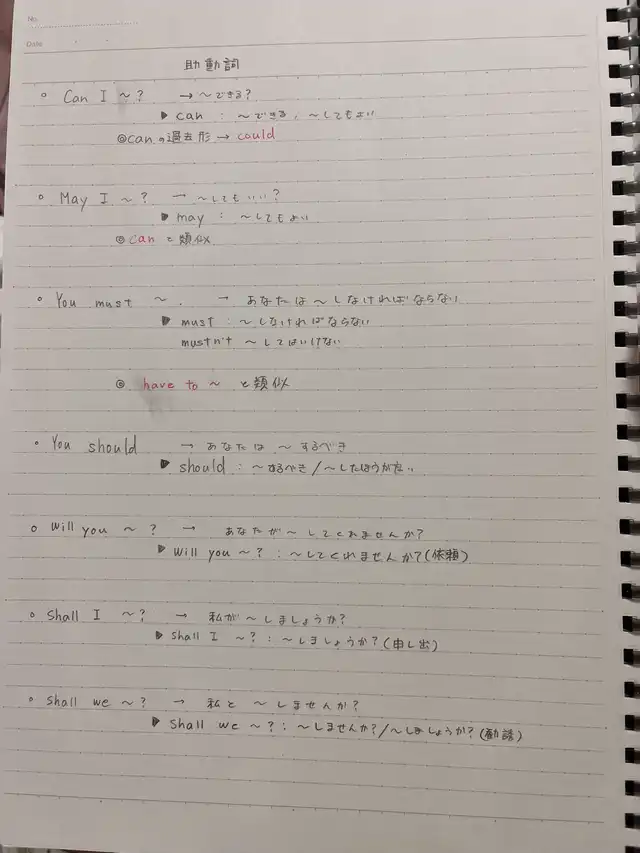 No.
Date
助動詞
○ Can I ~? → ~できる?
▶ can : ~できる、~してもよい
◎canの過去形 → could
○ May I ~? → ~してもいい?
▶ may : ~してもよい
◎ can と類似
○ You must ~. → あなたは ~ しなければならない
▶ must : ~しなければならない
mustn't ~してはいけない
◎ have to ~ と類似
○ You should → あなたは ~ するべき
▶ should : ~するべき/~したほうが良い
○ Will you ~? → あなたが ~ してくれませんか?
▶ Will you ~? : ~してくれませんか?(依頼)
○ Shall I ~? → 私が ~ しましょうか?
▶ Shall I ~? : ~しましょうか?(申し出)
○ Shall we ~? → 私と ~ しませんか?
▶ Shall we ~? : ~しませんか?/~しましょうか?(勧誘)